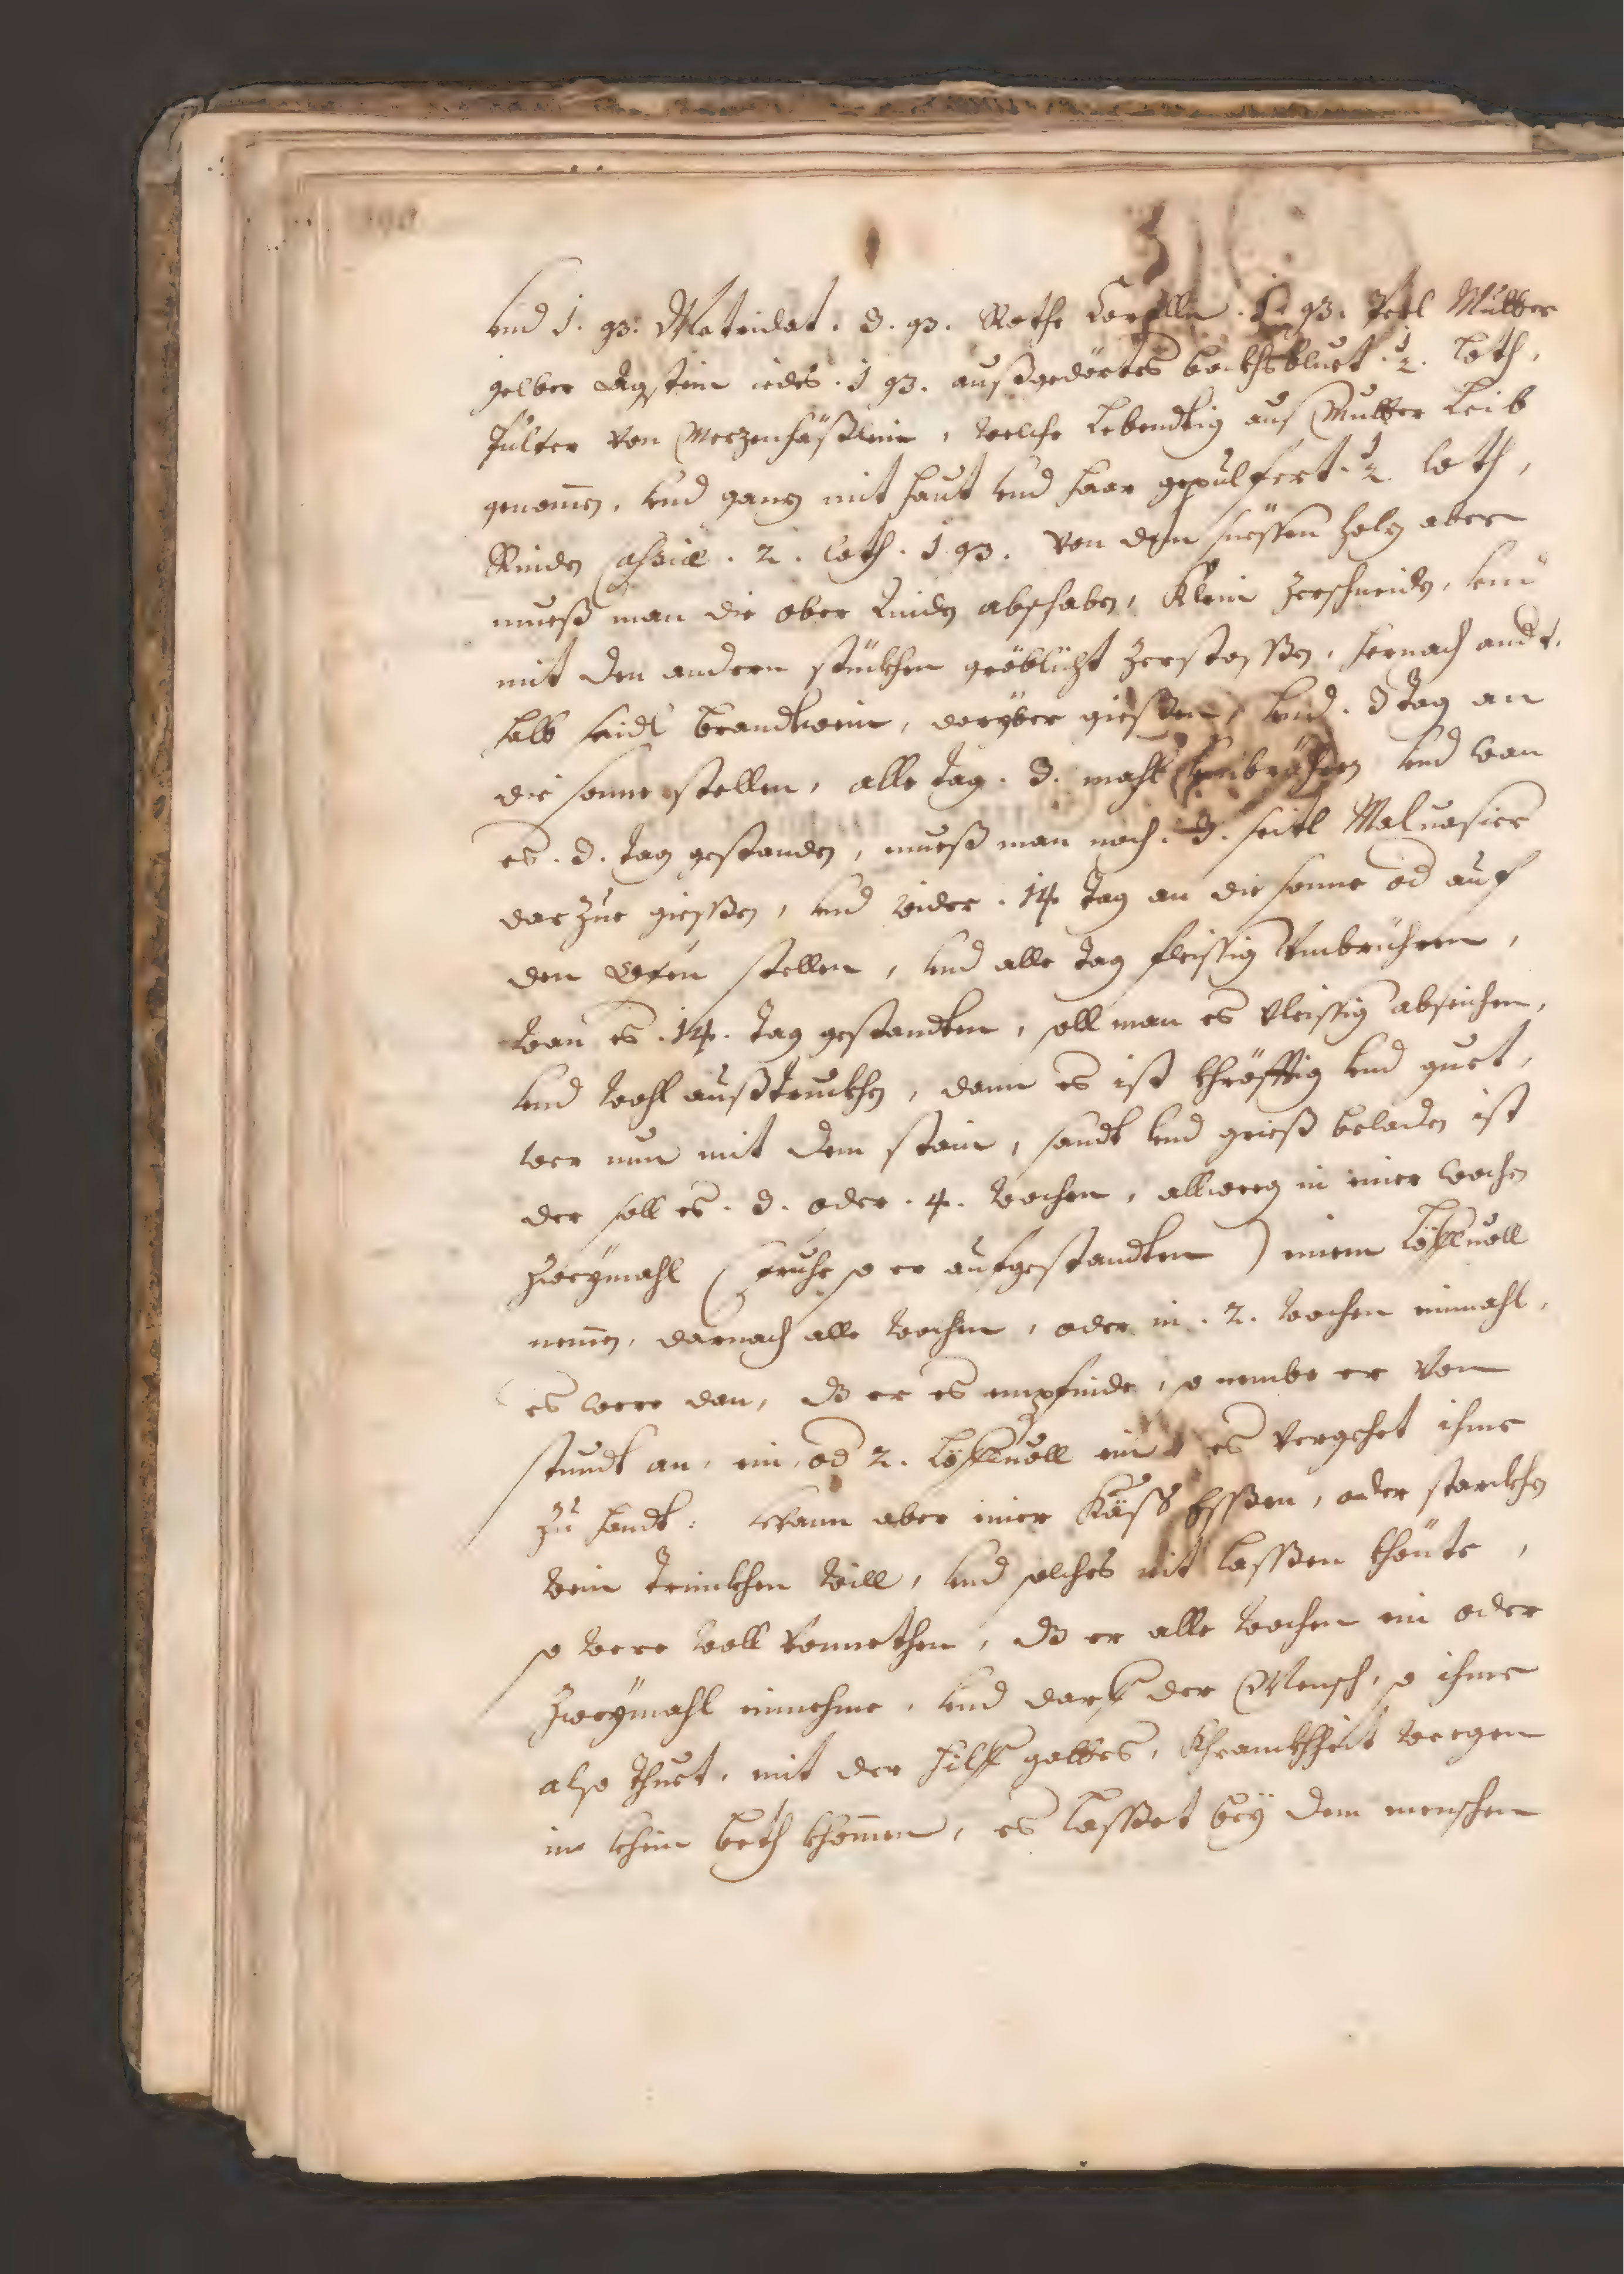 vnd 1. q3. Metridat. 3. q3. Rothe Corellen. 1. q3. Perl Mutter
gelber Agstein iedes. 1 q3. außgedörtes bockhsbluet. ½. loth,
Pulfer von Merzenhäßlein, welche Lebendtig aus Mutter Leib
genomen, vnd ganz mit haut vnd haar gepulfert. ½ loth,
Rinden Cassiæ. 2. loth. 1 q3. Von dem süessen holz aber
mueß man die ober Rinden abschaben, Klein zerschneiden, vnd
mit den andern stückhen gröblicht zerstossen, hernach andt.
halb seidl brandtwein, daryber giessen, vnd. 3 Tag an
die sonne stellen, alle tag. 3. mahl vmbrühren vnd wan
es. 3. tag gestanden, mueß man noch. 3. seitl Maluasier
darzue giessen, vnd wider. 14 tag an die sonne od auf
den Ofen stellen, vnd alle tag fleissig vmbrühren,
wan es. 14. tag gestandten, soll man es vleissig abseichen,
vnd wohl außtruckhen, dann es ist khröfftig vnd guet,
wer nun mit dem stain, sandt vnd grieß beladen ist
der soll es. 3. oder. 4. wochen, allweeg in einer wochen
zweymahl (fruhe so er aufgestandten) einen Löfluoll
nemen, darnach alle wochen, oder in. 2. wochen einmahl,
es were dan, dz er es empfinde, so nembe er von
stundt an, ein, od 2. Löfluoll ein es vergehet ihme
zu handt: Wann aber einer Käss Essen, oder starckhen
wein trinckhen will, vnd solches nit lassen khönte,
so were woll vonnethen, dz er alle wochen ein oder
zweymahl einnehme, vnd darf der Mensch, so ihme
also thuet, mit der hilff gottes, Khranckhheit weegen
in khein beth khomen, es lasset bey dem menschen